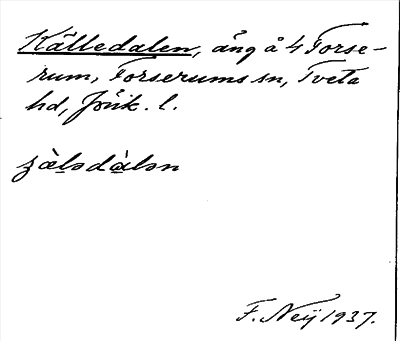 Källedalen, äng å 4 Forse-
rum, Forserums sn, Tveta
hd, Jönk. l.
ʒæ̀lədàlən
F. Neij 1937.